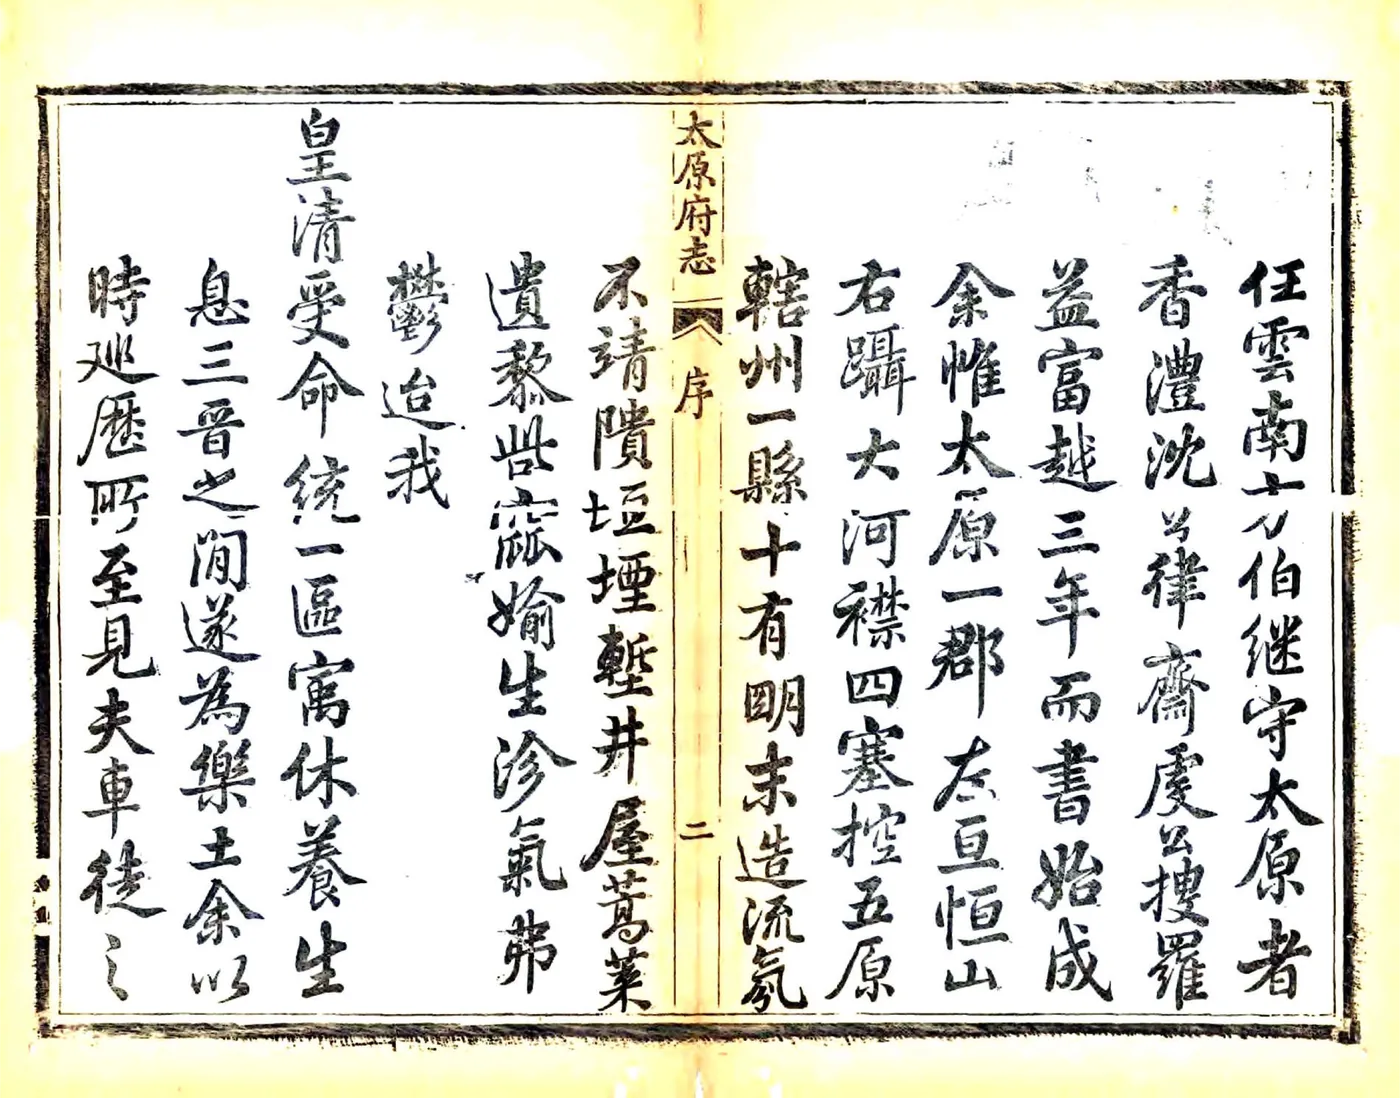 任雲南方伯継守太原者
香澧沈公律齋虔公搜羅
益富越三年而書始成
余惟太原一郡左亘恒山
右躡大河襟四塞控五原
轄州一縣十有明末造流氛
太原府志
序
二
不靖隤垣堙塹井屋蒿萊
遺黎呰窳媮生沴氣茀
鬱迨我
皇清受命統一區寓休養生
息三晉之間遂為樂土余以
時廵歷所至見夫車徒之